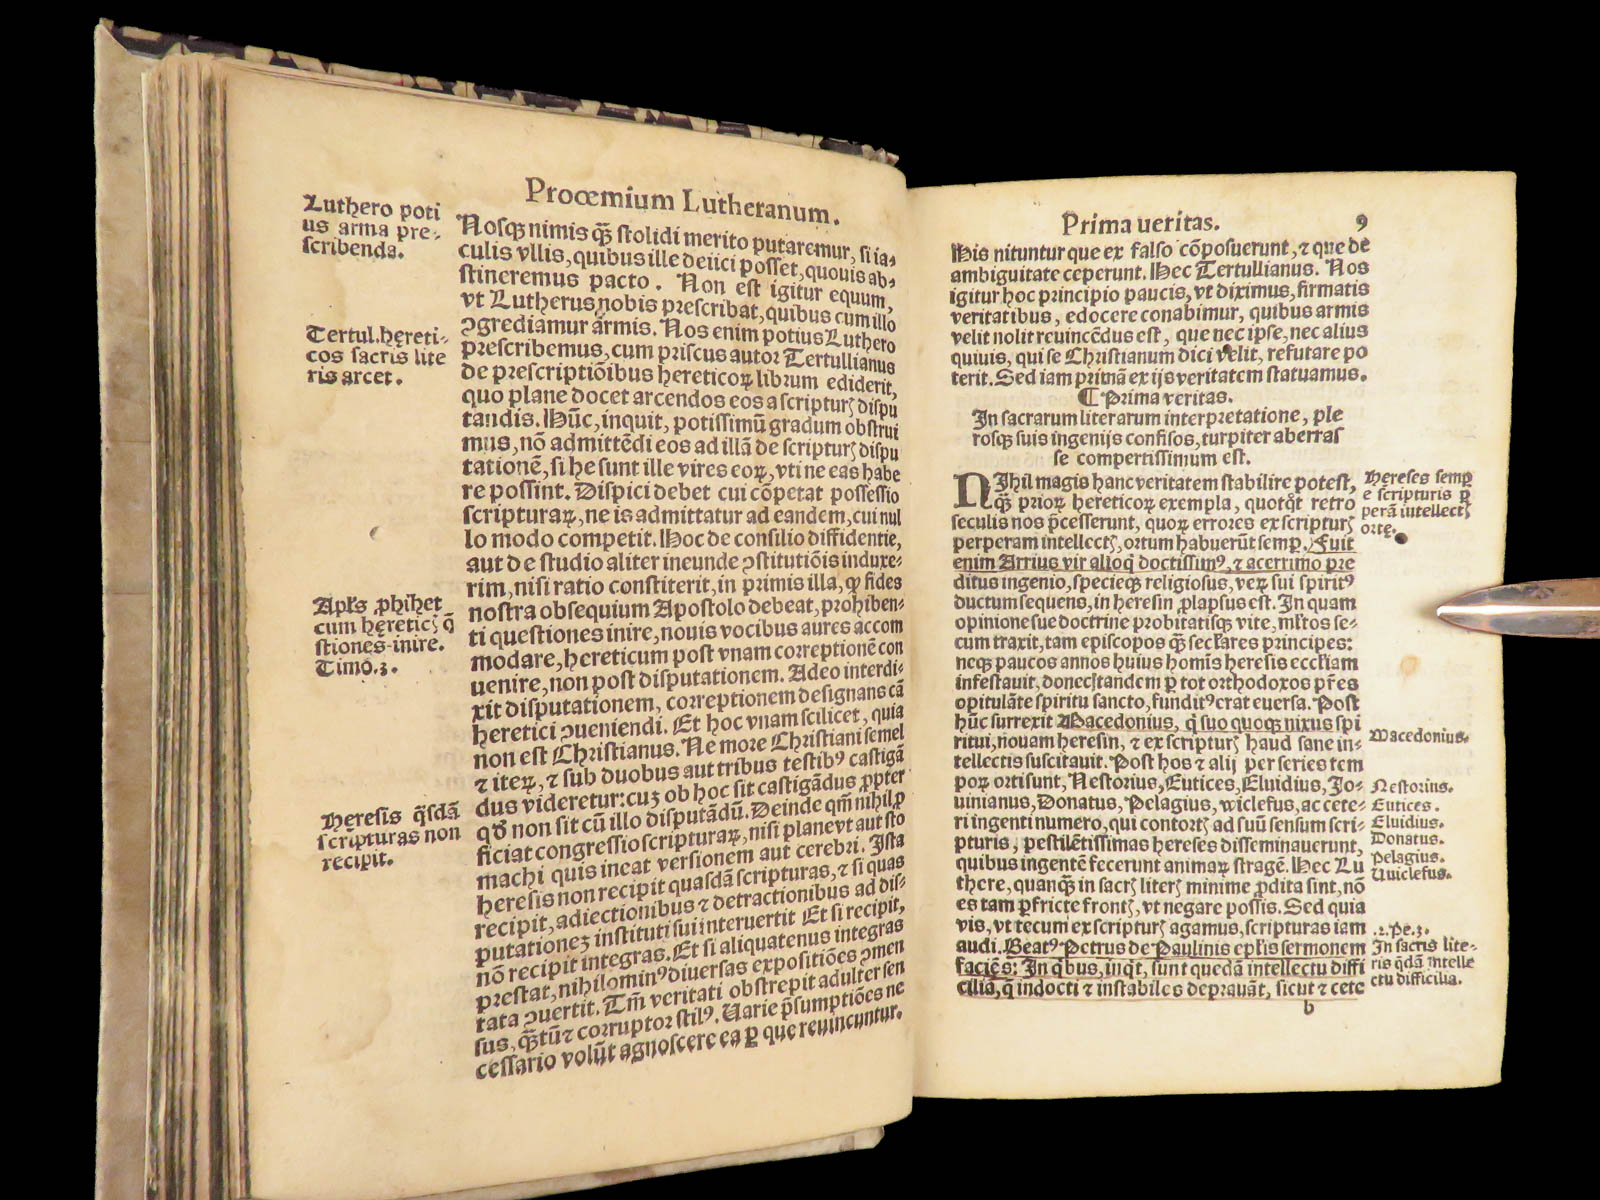 Prooemium Lutheranum.
Luthero poti
us arma pre-
scribenda.
Tertul. hęreti-
cos sacris lite
ris arcet.
Apl̃s ꝓhibet
cum hęreticꝭ q̃
stiones inire.
Timo.3.
Heresis q̃sdã
scripturas non
recipit.
Nosqꝫ nimis q̃ꝫ stolidi merito putaremur, si ia-
culis vllis, quibus ille deiici posset, quouis ab-
stineremus pacto. Non est igitur equum,
vt Lutherus nobis prescribat, quibus cum illo
ꝯgrediamur armis. Nos enim potius Luthero
prescribemus, cum priscus autor Tertullianus
de prescriptiõibus hereticoꝝ librum ediderit,
quo plane docet arcendos eos a scripturꝭ dispu
tandis. Hũc, inquit, potissimũ gradum obstrui
mus, nõ admittẽdi eos ad illã de scripturꝭ dispu
tationẽ, si he sunt ille vires eoꝝ, vti ne eas habe
re possint. Dispici debet cui cõpetat possessio
scripturaꝝ, ne is admittatur ad eandem, cui nul
lo modo competit. Hoc de consilio diffidentie,
aut de studio aliter ineunde ꝯstitutiõis induxe-
rim, nisi ratio constiterit, in primis illa, ꝙ fides
nostra obsequium Apostolo debeat, prohiben-
ti questiones inire, nouis vocibus aures accom
modare, hereticum post vnam correptionẽ con
uenire, non post disputationem. Adeo interdi-
xit disputationem, correptionem designans cã
heretici ꝯueniendi. Et hoc vnam scilicet, quia
non est Christianus. Ne more Christiani semel
⁊ iteꝝ, ⁊ sub duobus aut tribus testibꝰ castigã
dus videretur: cuꝫ ob hoc sit castigãdus ꝓpter
qđ non sit cũ illo disputãdũ. Deinde qm̃ nihil ꝓ
ficiat congressio scripturaꝝ, nisi plane vt aut sto
machi quis ineat versionem aut cerebri. Ista
heresis non recipit quasdã scripturas, ⁊ si quas
recipit, adiectionibus ⁊ detractionibus ad dis-
putationeꝫ instituti sui interuertit Et si recipit,
nõ recipit integras. Et si aliquatenus integras
prestat, nihilominꝰ diuersas expositiões ꝯmen
tata ꝯuertit. Tm̃ veritati obstrepit adulter sen
sus, q̃ꝫtũ ⁊ corruptor stilꝰ. Uarie p̃sumptiões ne
cessario volũt agnoscere ea ꝑ que reuincuntur.
Prima ueritas. 9
His nituntur que ex falso cõposuerunt, ⁊ que de
ambiguitate ceperunt. Hec Tertullianus. Nos
igitur hoc principio paucis, vt diximus, firmatis
veritatibus, edocere conabimur, quibus armis
velit nolit reuincẽdus est, que nec ipse, nec alius
quiuis, qui se Christianum dici velit, refutare po
terit. Sed iam primã ex ijs veritatem statuamus.
¶ Prima veritas.
In sacrarum literarum interpretatione, ple
rosqꝫ suis ingenijs confisos, turpiter aberras
se compertissimum est.
NIhil magis hanc veritatem stabilire potest,
q̃ꝫ prioꝝ hereticoꝝ exempla, quotqͦt retro
seculis nos p̃cesserunt, quoꝝ errores ex scripturꝭ
perperam intellectꝭ, ortum habuerũt semꝑ. Fuit
enim Arrius vir alioq̃ doctissimꝰ, ⁊ acerrimo pre
ditus ingenio, specieqꝫ religiosus, veꝝ sui spiritꝰ
ductum sequens, in heresin ꝓlapsus est. In quam
opinione sue doctrine probitatisqꝫ vite, ml̃tos se-
cum traxit, tam episcopos q̃ꝫ secl̃ares principes:
neqꝫ paucos annos huius homĩs heresis eccl̃iam
infestauit, donec tandem ꝑ tot orthodoxos pr̃es
opitulãte spiritu sancto, funditꝰ erat euersa. Post
hũc surrexit Macedonius, q̃ suo quoqꝫ nixus spi
ritui, nouam heresin, ⁊ ex scripturꝭ haud sane in-
tellectis suscitauit. Post hos ⁊ alij per series tem
poꝝ orti sunt, Nestorius, Eutices, Eluidius, Jo-
uinianus, Donatus, Pelagius, wiclefus, ac cete-
ri ingenti numero, qui contortꝭ ad suũ sensum scri-
pturis, pestilẽtissimas hereses disseminauerunt,
quibus ingentẽ fecerunt animaꝝ stragẽ. Hec Lu
there, quanqꝫ̃ in sacrꝭ literꝭ minime ꝓdita sint, nõ
es tam ꝑfricte frontꝭ, vt negare possis. Sed quia
vis, vt tecum ex scripturꝭ agamus, scripturas iam
audi. Beatꝰ Petrus de Paulinis epl̃is sermonem
faciẽs: In q̃bus, inq̃t, sunt quedã intellectu diffi
cilia, q̃ indocti ⁊ instabiles deprauãt, sicut ⁊ cete
b
Hereses semꝑ
e scripturis ꝑ
perã intellectꝭ
orte.
Macedonius.
Nestorius.
Eutices.
Eluidius.
Donatus.
Pelagius.
Uuiclefus.
.2.Pe.3.
In sacris lite-
ris q̃dã intelle
ctu difficilia.